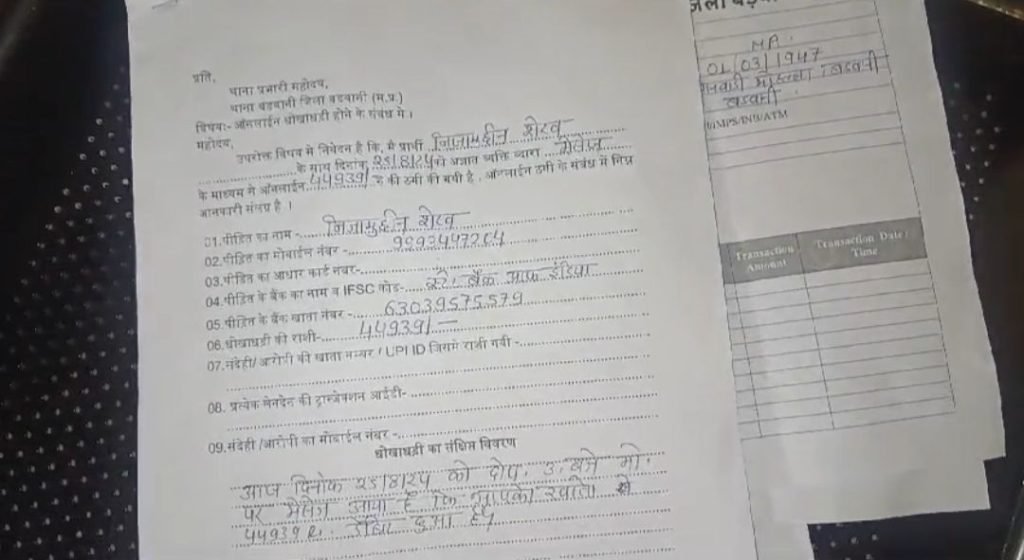 प्रति,
थाना प्रभारी महोदय,
थाना बडवानी जिला बडवानी (म.प्र.)
विषय:- ऑनलाईन धोखाधडी होने के संबंध मे ।
महोदय,
उपरोक्त विषय मे निवेदन है कि, मै प्रार्थी निजामुद्दीन शेख
के साथ दिनांक 25/8/24 को अज्ञात व्यक्ति द्वारा मैसेज
के माध्यम से ऑनलाईन 44939/ रू की ठगी की गयी है , ऑनलाईन ठगी के संबंध में निम्न
जानकारी संलग्न है ।
01.पीडित का नाम - निजामुद्दीन शेख
02.पीडित का मोबाईल नंबर -
03.पीडित का आधार कार्ड नंबर-
04.पीडित के बैंक का नाम व IFSC कोड- बैंक आफ इंडिया
05.पीडित के बैंक खाता नंबर - 63039575579
06.धोखाधडी की राशी- 44939/-
07.संदेही/ आरोपी की खाता नम्बर / UPI ID जिसमे राशी गयी -
08. प्रत्येक लेनदेन की ट्रान्जेक्शन आईडी-
09.संदेही /आरोपी का मोबाईल नंबर -
धोखाधडी का संक्षिप्त विवरण
आज दिनांक 25/8/24 को दोप. 3. बजे मो.
पर मैसेज आया है कि आपके खाते से
44939 रु.
01/03/1947
बडवानी
/IMPS/INB/ATM
Transaction Amount
Transaction Date / Time